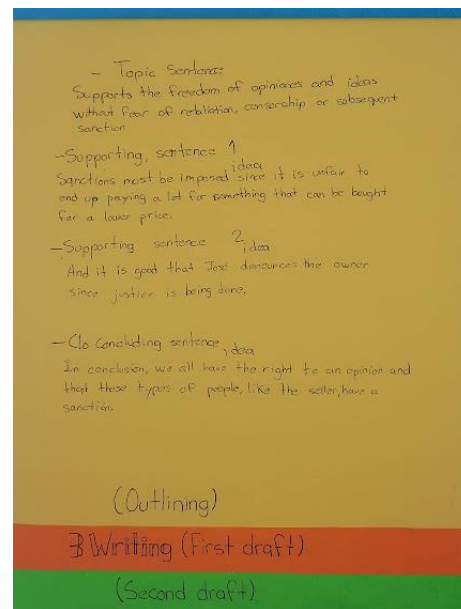 - Topic Sentence
Supports the freedom of opiniones and ideas
without fear of retaliation, censorship or subsequent
sanction
- Supporting, sentence 1
idea
Sanctions most be imposed since it is unfair to
end up paying a lot for something that can be bought
for a lower price.
- Supporting sentence 2
idea
And it is good that José denounces the owner
since justice is being done.
- Clo Concluding sentence, idea
In conclusion, we all have the right to an opinion and
that these types of people, like the seller, have a
sanction.
(Outlining)
3 Writing (First draft)
(Second draft)